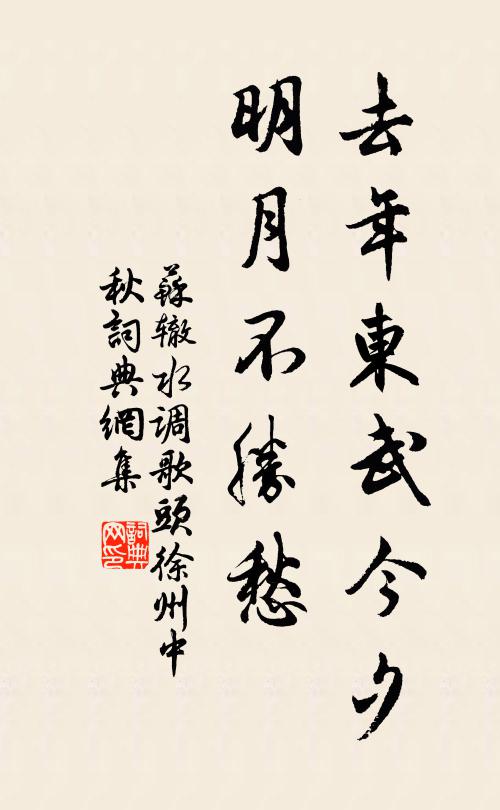 去年東武今夕
明月不勝愁
蘇辙水调歌頭徐州中
秋詞典網集
詞典
网印